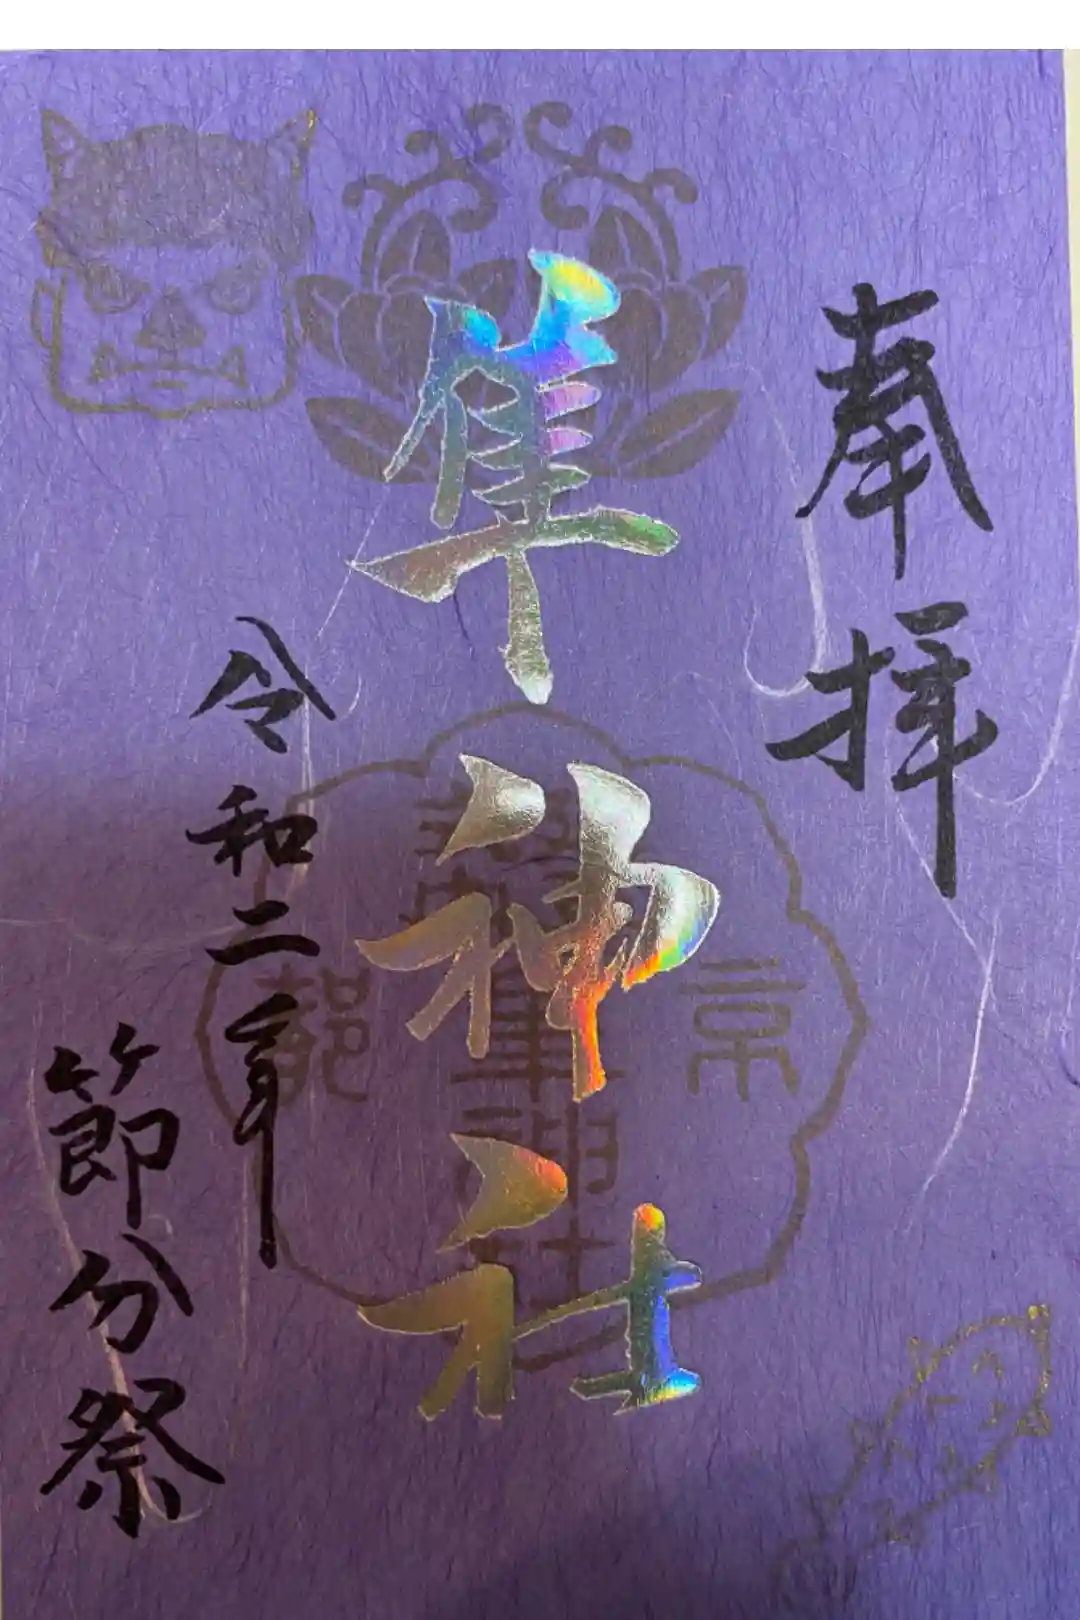 奉拝
隼神社
京都
隼神社
令和二年
節分祭